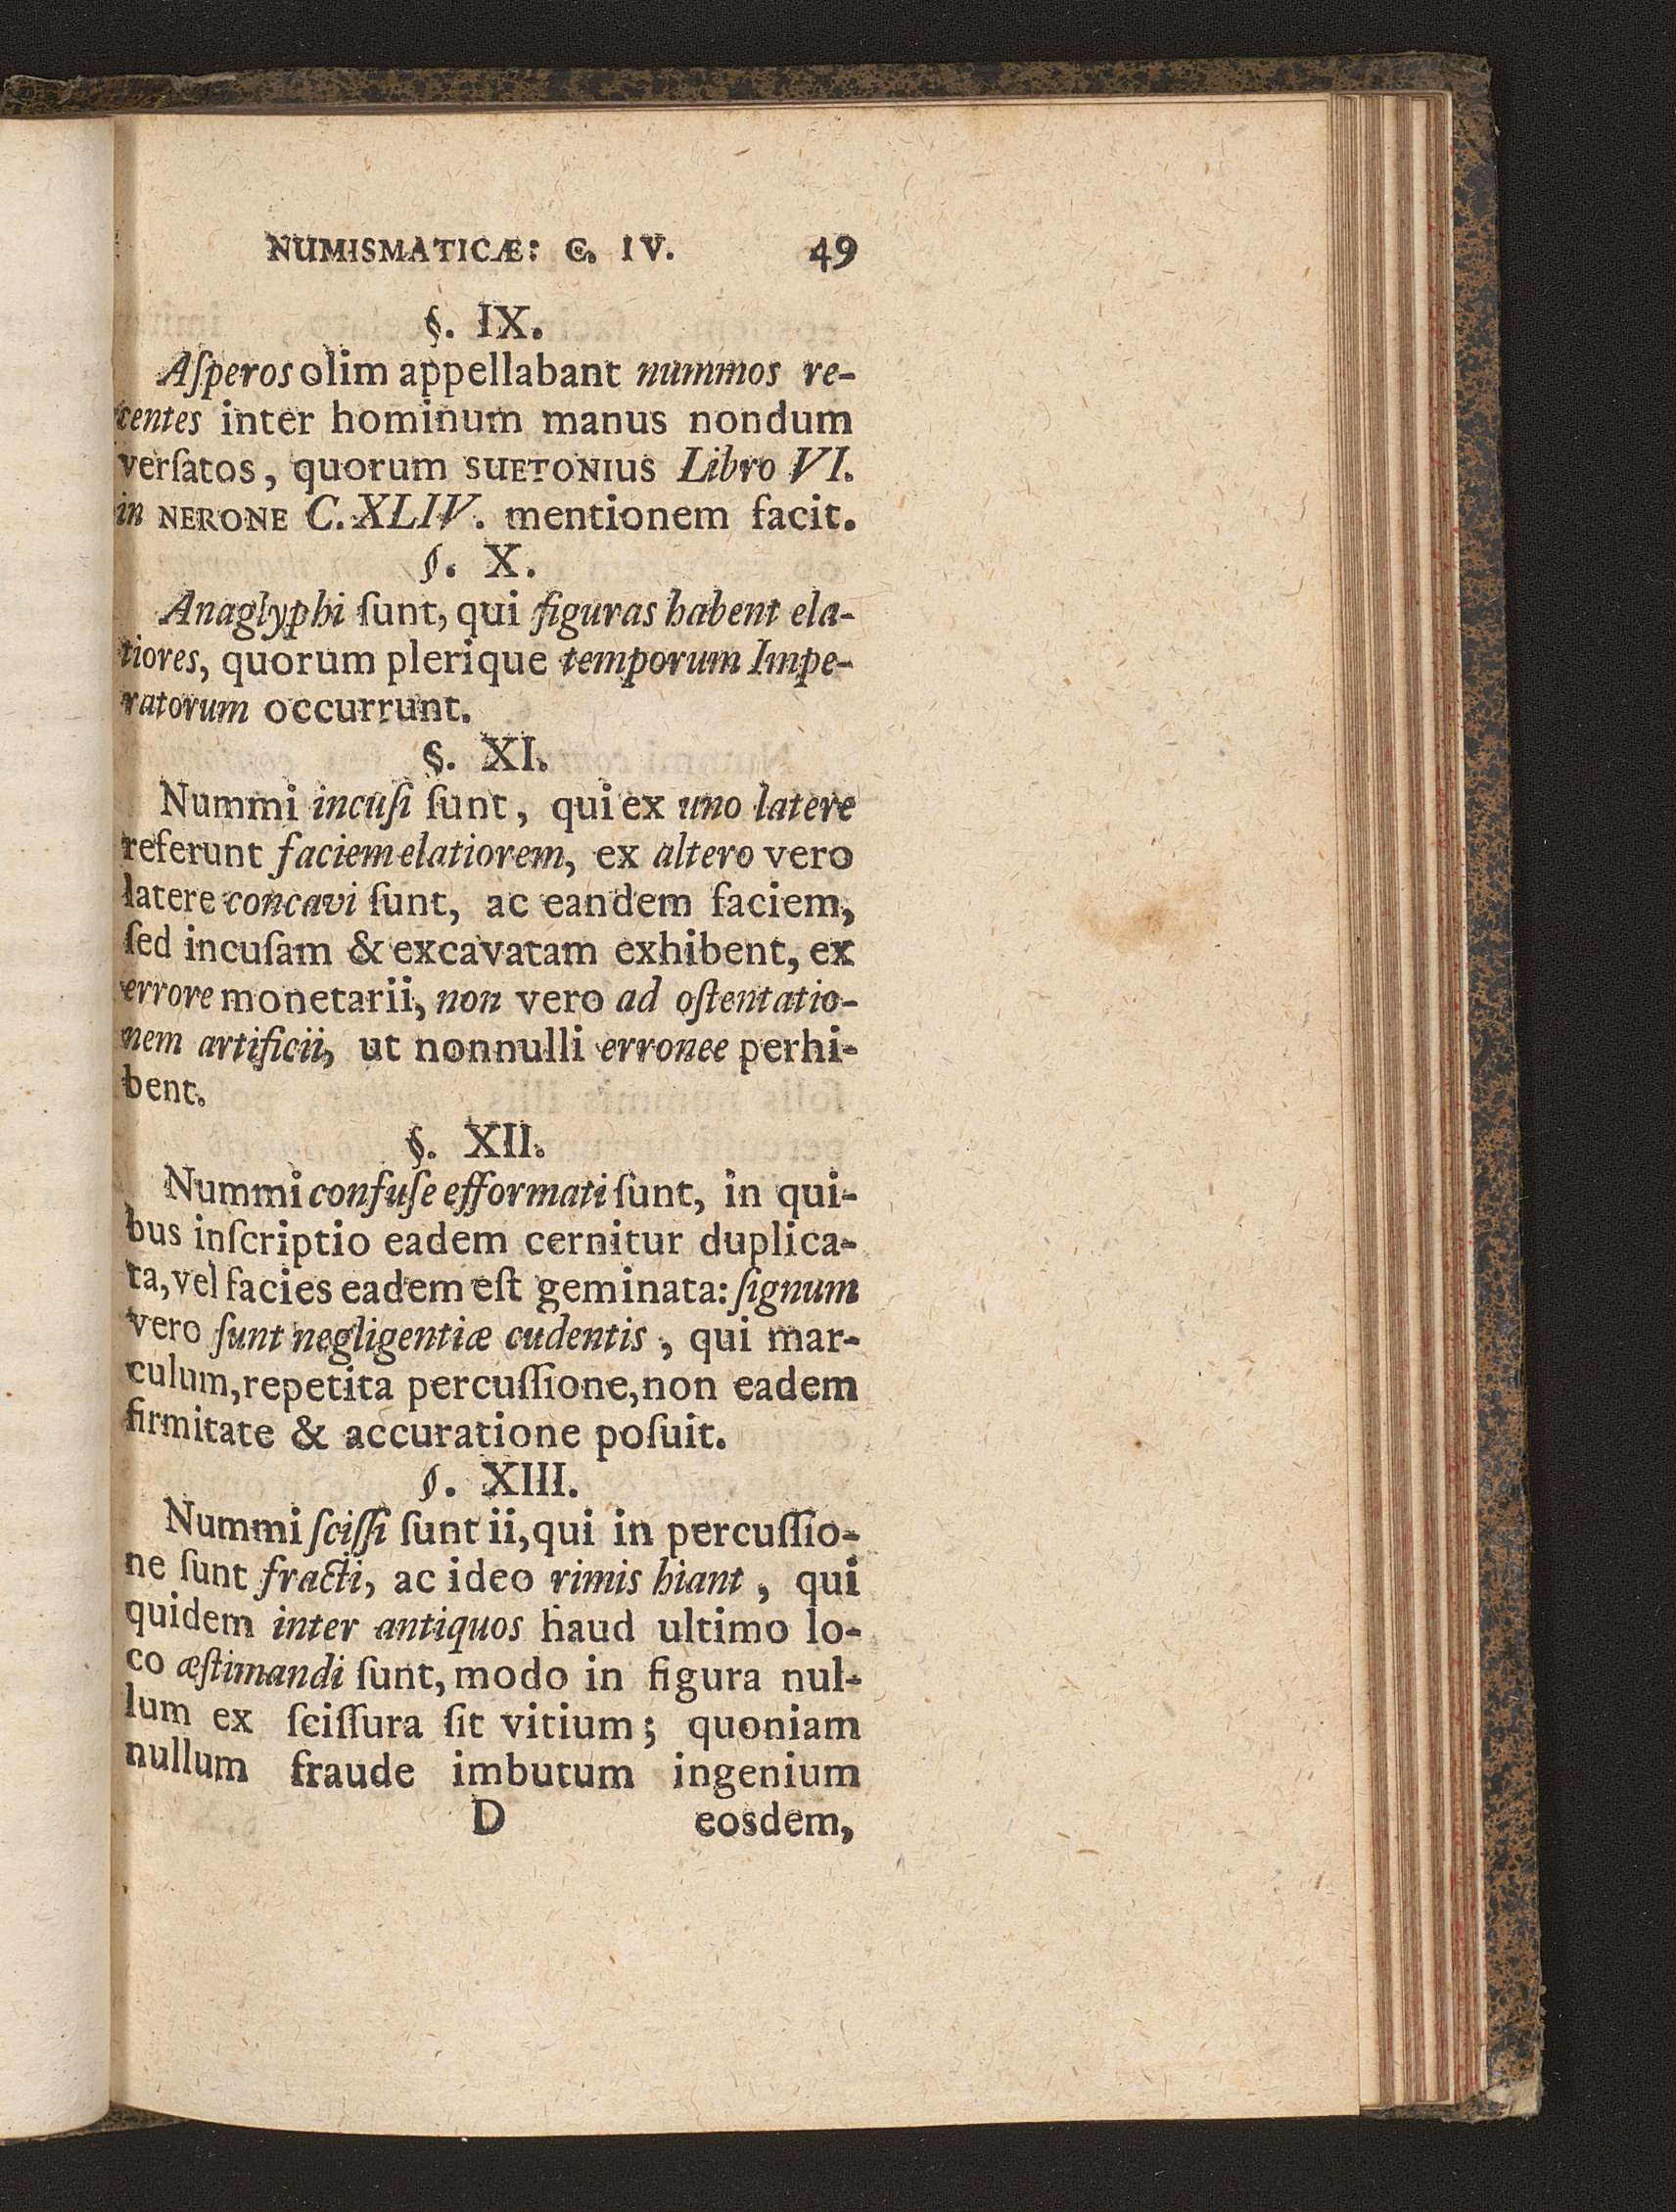 NUMISMATICÆ: C. IV. 49
§. IX.
Aſperos olim appellabant nummos re-
centes inter hominum manus nondum
verſatos, quorum SUETONIUS Libro VI.
in NERONE C. XLIV. mentionem facit.
§. X.
Anaglyphi ſunt, qui figuras habent ela-
tiores, quorum plerique temporum Impe-
ratorum occurrunt.
§. XI.
Nummi incuſi ſunt, qui ex uno latere
referunt faciem elatiorem, ex altero vero
latere concavi ſunt, ac eandem faciem,
ſed incuſam & excavatam exhibent, ex
errore monetarii, non vero ad oſtentatio-
nem artificii, ut nonnulli erronee perhi-
bent.
§. XII.
Nummi confuſe efformati ſunt, in qui-
bus inſcriptio eadem cernitur duplica-
ta, vel facies eadem eſt geminata: ſignum
vero ſunt negligentiæ cudentis, qui mar-
culum, repetita percuſſione, non eadem
firmitate & accuratione poſuit.
§. XIII.
Nummi ſciſſi ſunt ii, qui in percuſſio-
ne ſunt fracti, ac ideo rimis hiant, qui
quidem inter antiquos haud ultimo lo-
co æſtimandi ſunt, modo in figura nul-
lum ex ſciſſura ſit vitium; quoniam
nullum fraude imbutum ingenium
D eosdem,